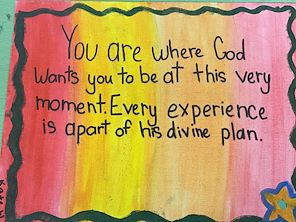 You are where God
wants you to be at this very
moment. Every experience
is apart of his divine plan.